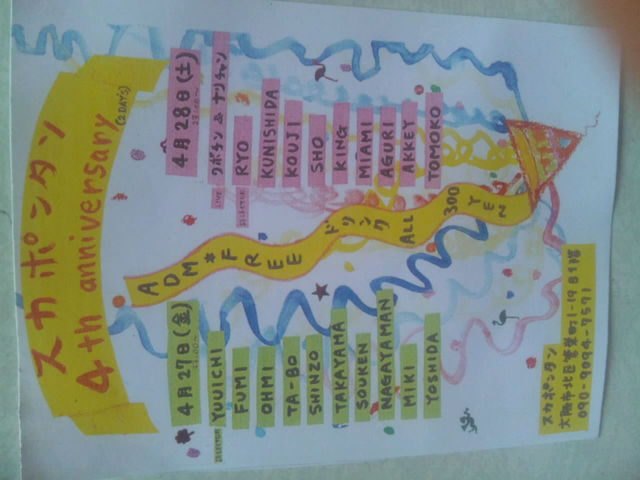 スカポンタン
4th anniversary
(2DAYS)
4月27日(金)
YUUICHI
FUMI
OHMI
TA-BO
SHINZO
TAKAYAMA
SOUKEN
NAGAYAMAN
MIKI
YOSHIDA
ADM*FREE
ドリンク ALL 300 YEN
4月28日(土)
LIVE
クボチン & ナリチャン
RYO
KUNISHIDA
KOUJI
SHO
KING
MIAMI
AGURI
AKKEY
TOMOKO
スカポンタン
大阪市北区堂山町1-19 B1階
090-3094-7571